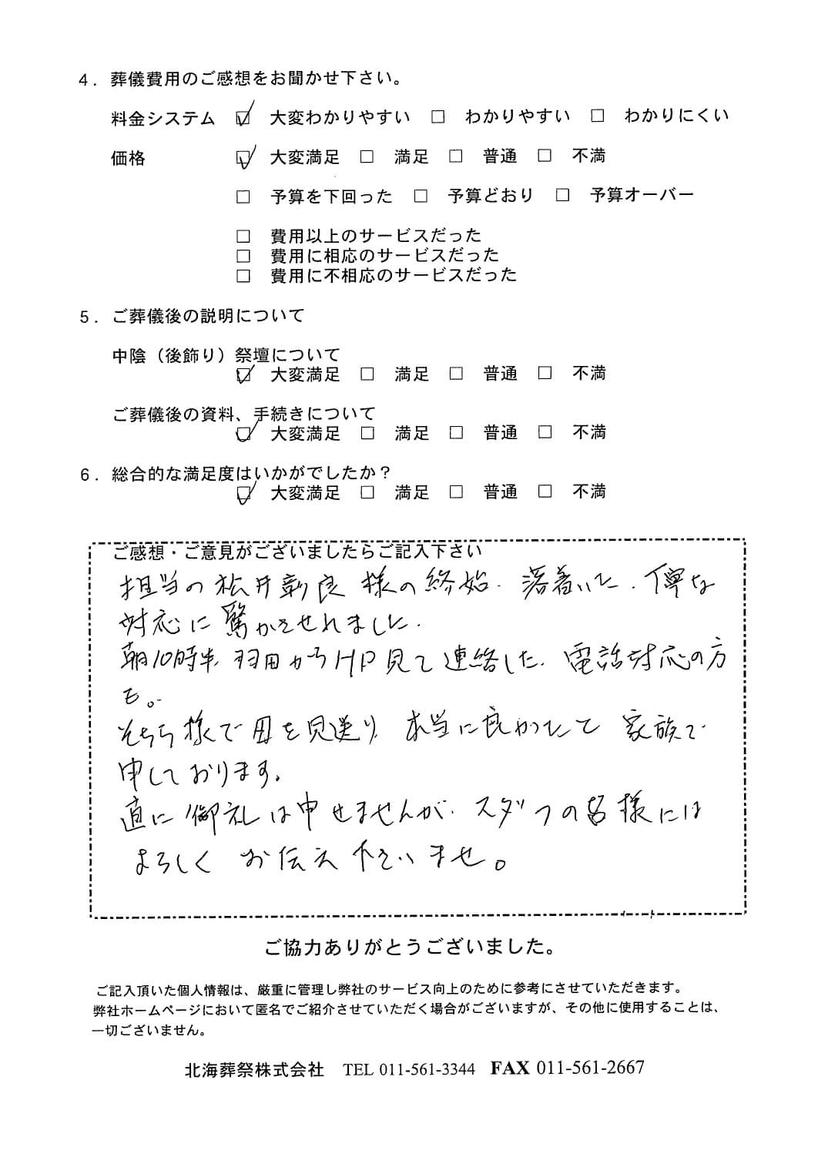 4．葬儀費用のご感想をお聞かせ下さい。
料金システム ☑ 大変わかりやすい □ わかりやすい □ わかりにくい
価格 ☑ 大変満足 □ 満足 □ 普通 □ 不満
□ 予算を下回った □ 予算どおり □ 予算オーバー
□ 費用以上のサービスだった
□ 費用に相応のサービスだった
□ 費用に不相応のサービスだった
5．ご葬儀後の説明について
中陰（後飾り）祭壇について
☑ 大変満足 □ 満足 □ 普通 □ 不満
ご葬儀後の資料、手続きについて
☑ 大変満足 □ 満足 □ 普通 □ 不満
6．総合的な満足度はいかがでしたか？
☑ 大変満足 □ 満足 □ 普通 □ 不満
ご感想・ご意見がございましたらご記入下さい
担当の松井彰良様の終始、落着いた、丁寧な
対応に驚かさせれました。
朝10時半 羽田からHP見て連絡した、電話対応の方
も。
そちら様で母を見送り 本当に良かったと 家族で
申しております。
直に御礼は申せませんが、スタッフの皆様には
よろしく お伝え下さいませ。
ご協力ありがとうございました。
ご記入頂いた個人情報は、厳重に管理し弊社のサービス向上のために参考にさせていただきます。
弊社ホームページにおいて匿名でご紹介させていただく場合がございますが、その他に使用することは、
一切ございません。
北海葬祭株式会社 TEL 011-561-3344 FAX 011-561-2667